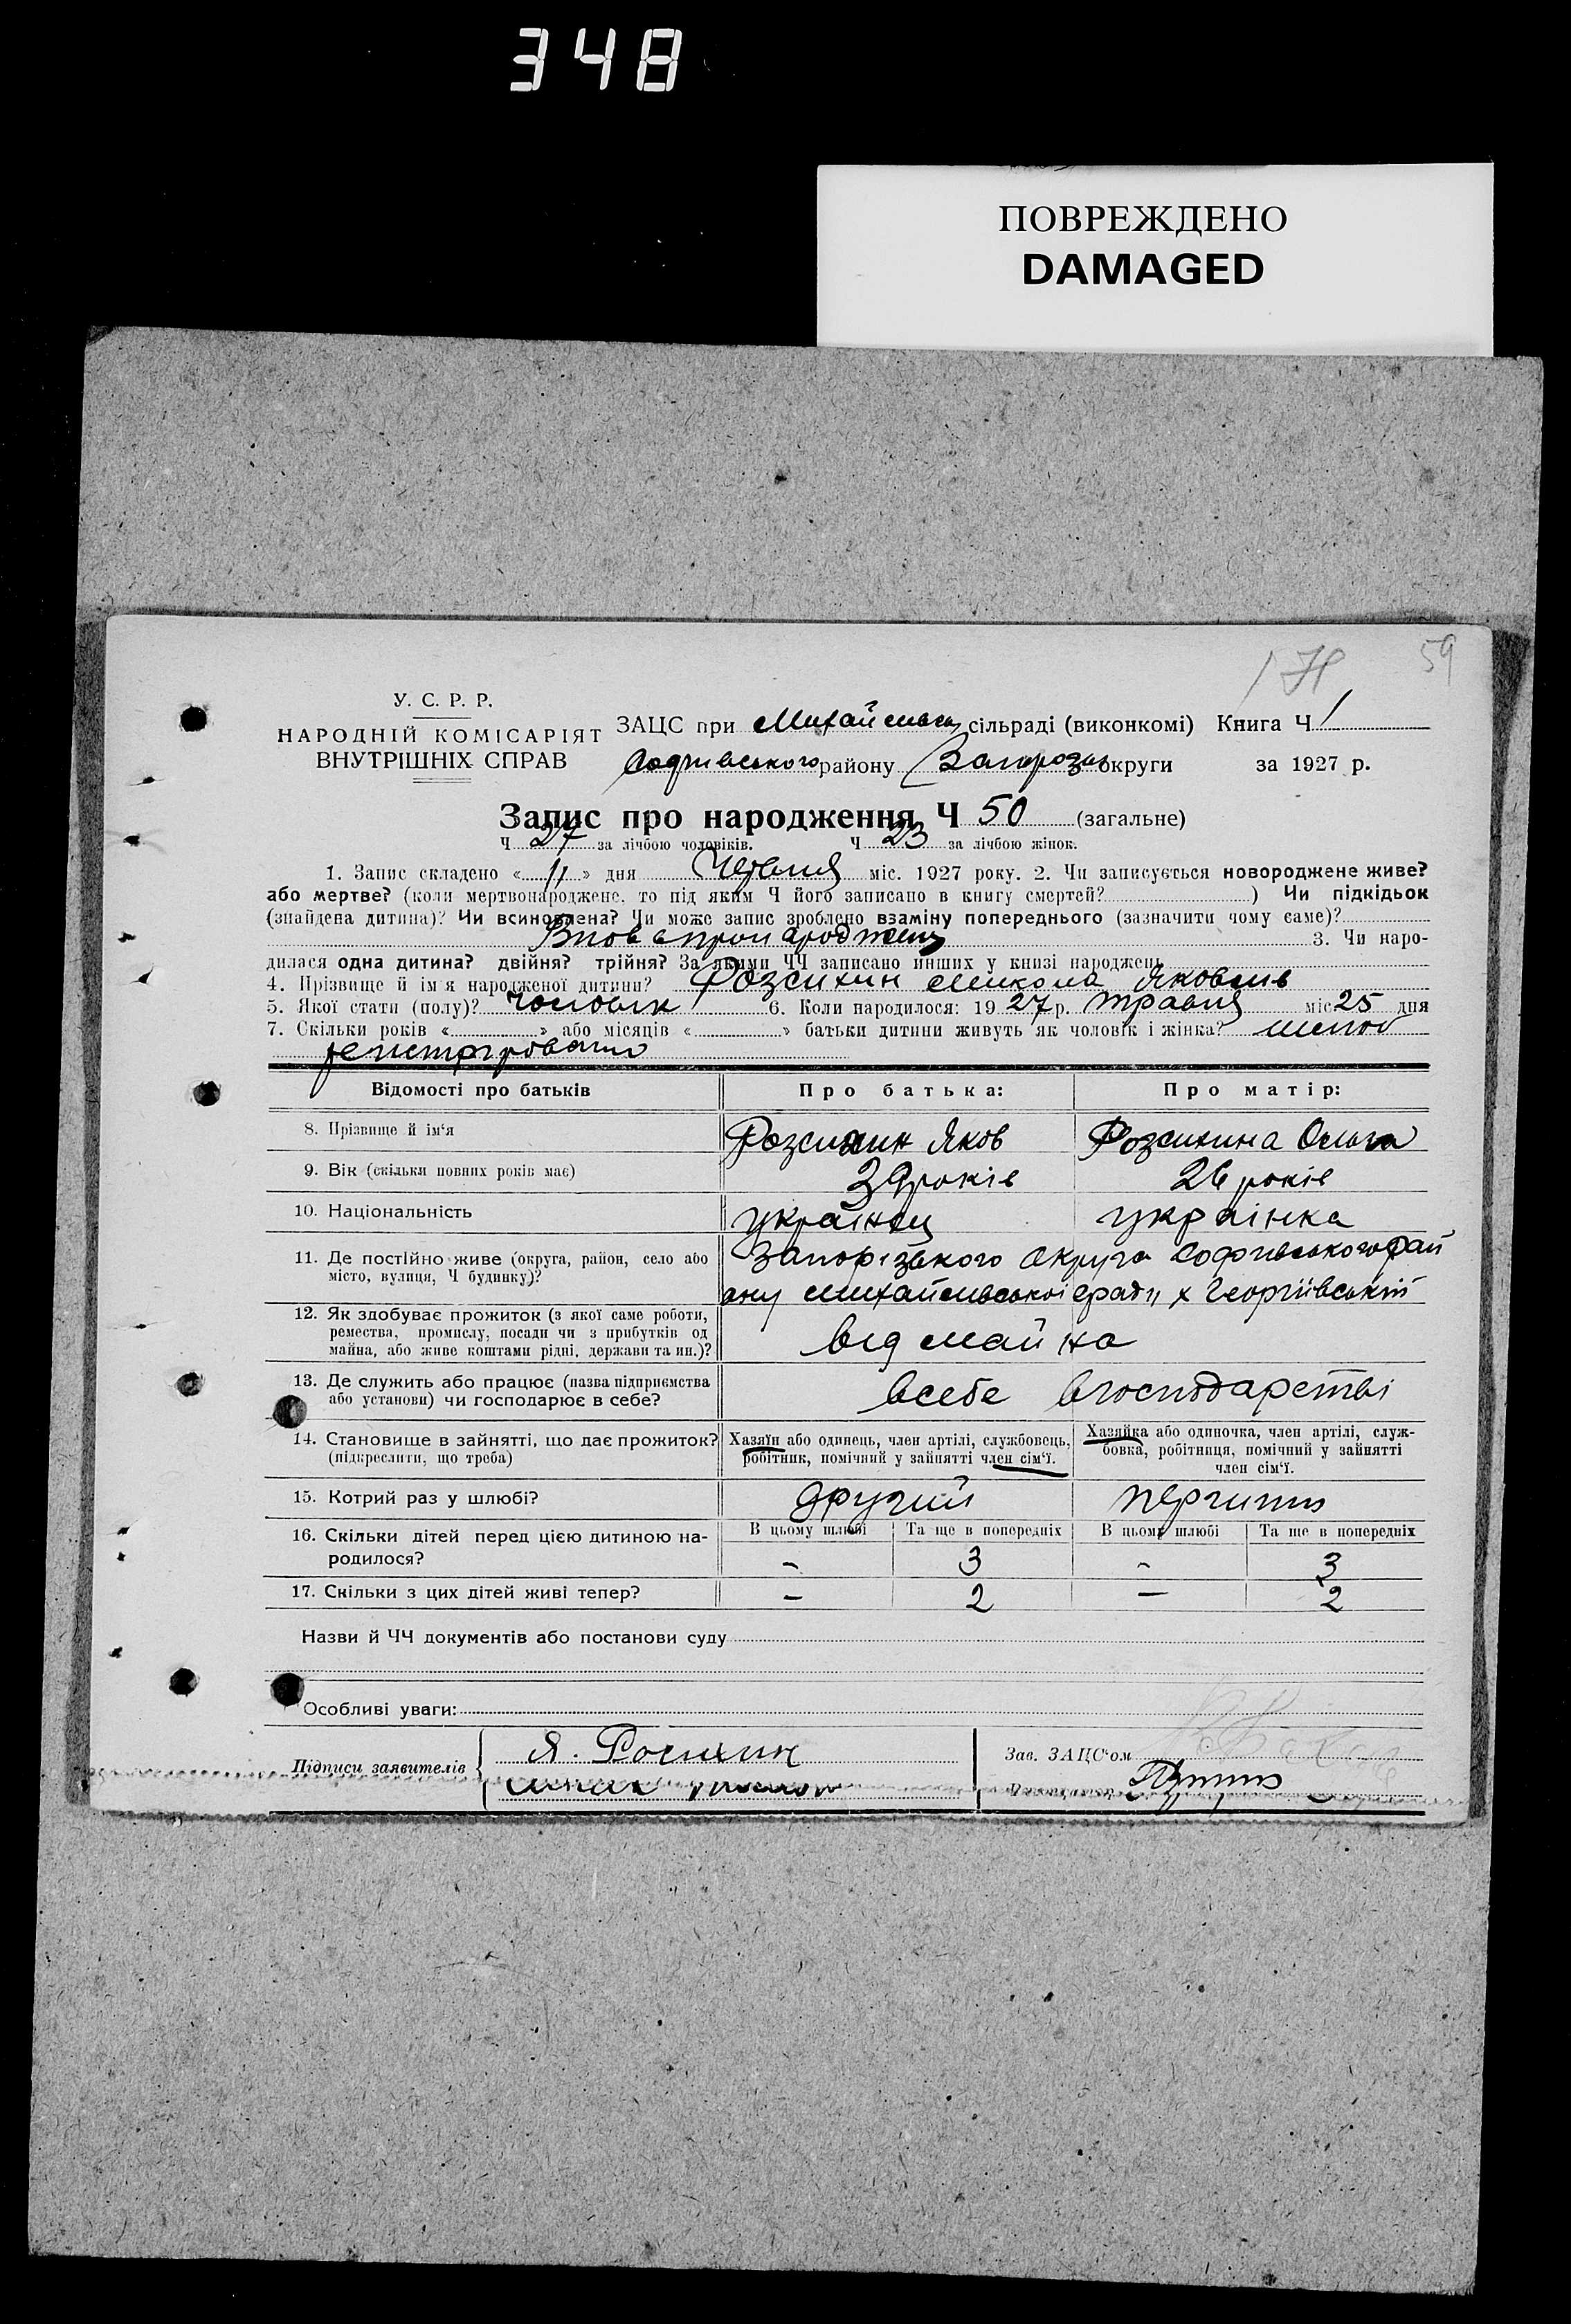 348
ПОВРЕЖДЕНО
DAMAGED
59
У. С. Р. Р.
НАРОДНІЙ КОМІСАРІЯТ
ВНУТРІШНІХ СПРАВ
ЗАЦС при сільраді (виконкомі) Книга Ч 1
району округи за 1927 р.
Запис про народження Ч 50 (загальне)
Ч 27 за лічбою чоловіків. Ч 23 за лічбою жінок.
1. Запис складено « 11 » дня Червня міс. 1927 року. 2. Чи записується новороджене живе?
або мертве? (коли мертвонароджене, то під яким Ч його записано в книгу смертей? ) Чи підкідьок
(знайдена дитина)? Чи всиновлена? Чи може запис зроблено взаміну попереднього (зазначити чому саме)?
3. Чи наро-
дилася одна дитина? двійня? трійня? За якими ЧЧ записано инших у книзі народжень
4. Прізвище й ім'я народженої дитини? Розсихин Микола Яковлів
5. Якої стати (полу)? чоловік 6. Коли народилося: 19 27 р. травня міс 25 дня
7. Скільки років « » або місяців « » батьки дитини живуть як чоловік і жінка?
Відомості про батьків Про батька: Про матір:
8. Прізвище й ім'я Розсихин Яков Розсихина Ольга
9. Вік (скільки повних років має) 39 років 26 років
10. Національність українец українка
11. Де постійно живе (округа, район, село або місто, вулиця, Ч будинку)? Запорізького округа Софиівського рай
ону Михайлівської ради х Георгіївський
12. Як здобуває прожиток (з якої саме роботи,
ремества, промислу, посади чи з прибутків од
майна, або живе коштами рідні, держави та ин.)? від майна
13. Де служить або працює (назва підприємства
або установи) чи господарює в себе? всебе вгосподарстві
14. Становище в зайнятті, що дає прожиток?
(підкреслити, що треба)
Хазяїн або одинець, член артілі, службовець,
робітник, помічний у зайнятті член сім'ї.
Хазяйка або одиночка, член артілі, служ-
бовка, робітниця, помічний у зайнятті
член сім'ї.
15. Котрий раз у шлюбі? другий
16. Скільки дітей перед цією дитиною на-
родилося?
В цьому шлюбі Та ще в попередніх В цьому шлюбі Та ще в попередніх
- 3 - 3
17. Скільки з цих дітей живі тепер? - 2 - 2
Назви й ЧЧ документів або постанови суду
Особливі уваги:
Підписи заявителів Я. Росихин
Зав. ЗАЦС'ом